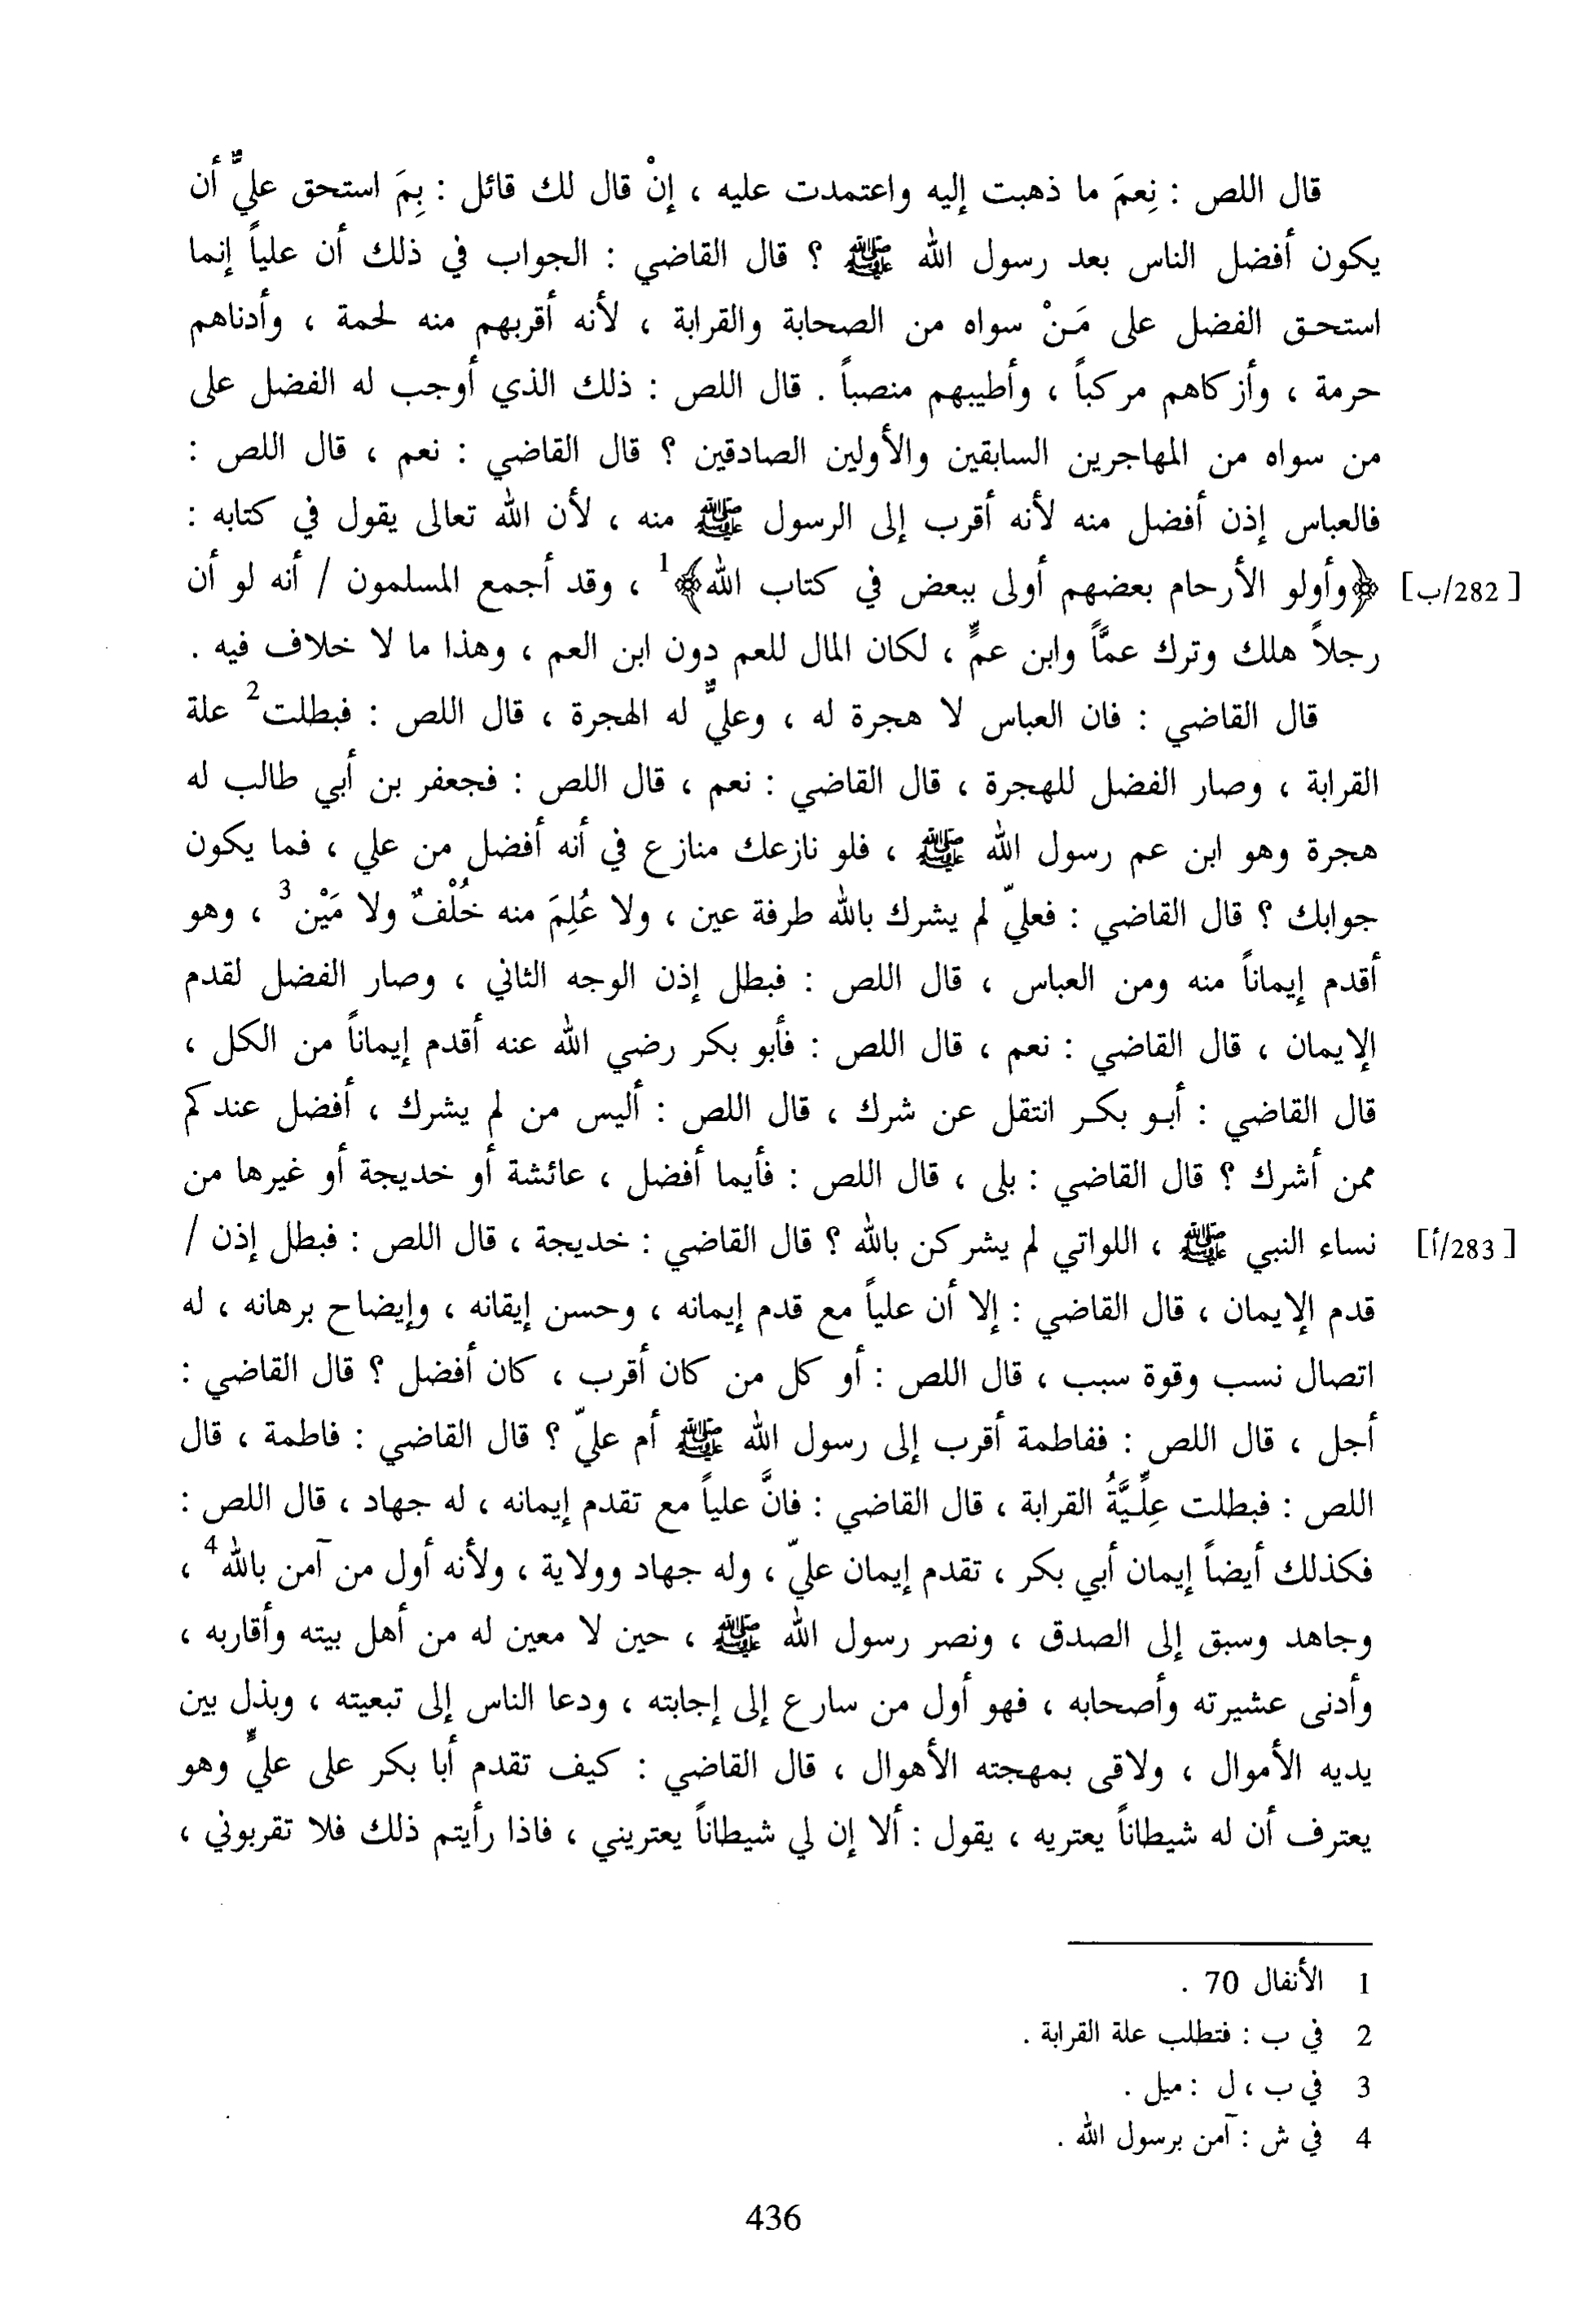 قال اللص : نِعمَ ما ذهبت إليه واعتمدت عليه ، إنْ قال لك قائل : بِمَ استحق عليٌّ أن
يكون أفضل الناس بعد رسول الله ﷺ ؟ قال القاضي : الجواب في ذلك أن علياً إنما
استحق الفضل على مَنْ سواه من الصحابة والقرابة ، لأنه أقربهم منه لحمة ، وأدناهم
حرمة ، وأزكاهم مركباً ، وأطيبهم منصباً . قال اللص : ذلك الذي أوجب له الفضل على
من سواه من المهاجرين السابقين والأولين الصادقين ؟ قال القاضي : نعم ، قال اللص :
فالعباس إذن أفضل منه لأنه أقرب إلى الرسول ﷺ منه ، لأن الله تعالى يقول في كتابه :
[282/ب] ﴿وأولو الأرحام بعضهم أولى ببعض في كتاب الله﴾1 ، وقد أجمع المسلمون / أنه لو أن
رجلاً هلك وترك عمَّاً وابن عمٍّ ، لكان المال للعم دون ابن العم ، وهذا ما لا خلاف فيه .
قال القاضي : فان العباس لا هجرة له ، وعليٌّ له الهجرة ، قال اللص : فبطلت2 علة
القرابة ، وصار الفضل للهجرة ، قال القاضي : نعم ، قال اللص : فجعفر بن أبي طالب له
هجرة وهو ابن عم رسول الله ﷺ ، فلو نازعك منازع في أنه أفضل من علي ، فما يكون
جوابك ؟ قال القاضي : فعليّ لم يشرك بالله طرفة عين ، ولا عُلِمَ منه خُلْفٌ ولا مَيْن3 ، وهو
أقدم إيماناً منه ومن العباس ، قال اللص : فبطل إذن الوجه الثاني ، وصار الفضل لقدم
الإيمان ، قال القاضي : نعم ، قال اللص : فأبو بكر رضي الله عنه أقدم إيماناً من الكل ،
قال القاضي : أبو بكر انتقل عن شرك ، قال اللص : أليس من لم يشرك ، أفضل عندكم
ممن أشرك ؟ قال القاضي : بلى ، قال اللص : فأيما أفضل ، عائشة أو خديجة أو غيرها من
[283/أ] نساء النبي ﷺ ، اللواتي لم يشركن بالله ؟ قال القاضي : خديجة ، قال اللص : فبطل إذن /
قدم الإيمان ، قال القاضي : إلا أن علياً مع قدم إيمانه ، وحسن إيقانه ، وإيضاح برهانه ، له
اتصال نسب وقوة سبب ، قال اللص : أو كل من كان أقرب ، كان أفضل ؟ قال القاضي :
أجل ، قال اللص : ففاطمة أقرب إلى رسول الله ﷺ أم عليّ ؟ قال القاضي : فاطمة ، قال
اللص : فبطلت عِلِّيَّةُ القرابة ، قال القاضي : فانَّ علياً مع تقدم إيمانه ، له جهاد ، قال اللص :
فكذلك أيضاً إيمان أبي بكر ، تقدم إيمان عليّ ، وله جهاد وولاية ، ولأنه أول من آمن بالله4 ،
وجاهد وسبق إلى الصدق ، ونصر رسول الله ﷺ ، حين لا معين له من أهل بيته وأقاربه ،
وأدنى عشيرته وأصحابه ، فهو أول من سارع إلى إجابته ، ودعا الناس إلى تبعيته ، وبذل بين
يديه الأموال ، ولاقى بمهجته الأهوال ، قال القاضي : كيف تقدم أبا بكر على عليٍّ وهو
يعترف أن له شيطاناً يعتريه ، يقول : ألا إن لي شيطاناً يعتريني ، فاذا رأيتم ذلك فلا تقربوني ،
1 الأنفال 70 .
2 في ب : فتطلب علة القرابة .
3 في ب ، ل : ميل .
4 في ش : آمن برسول الله .
436